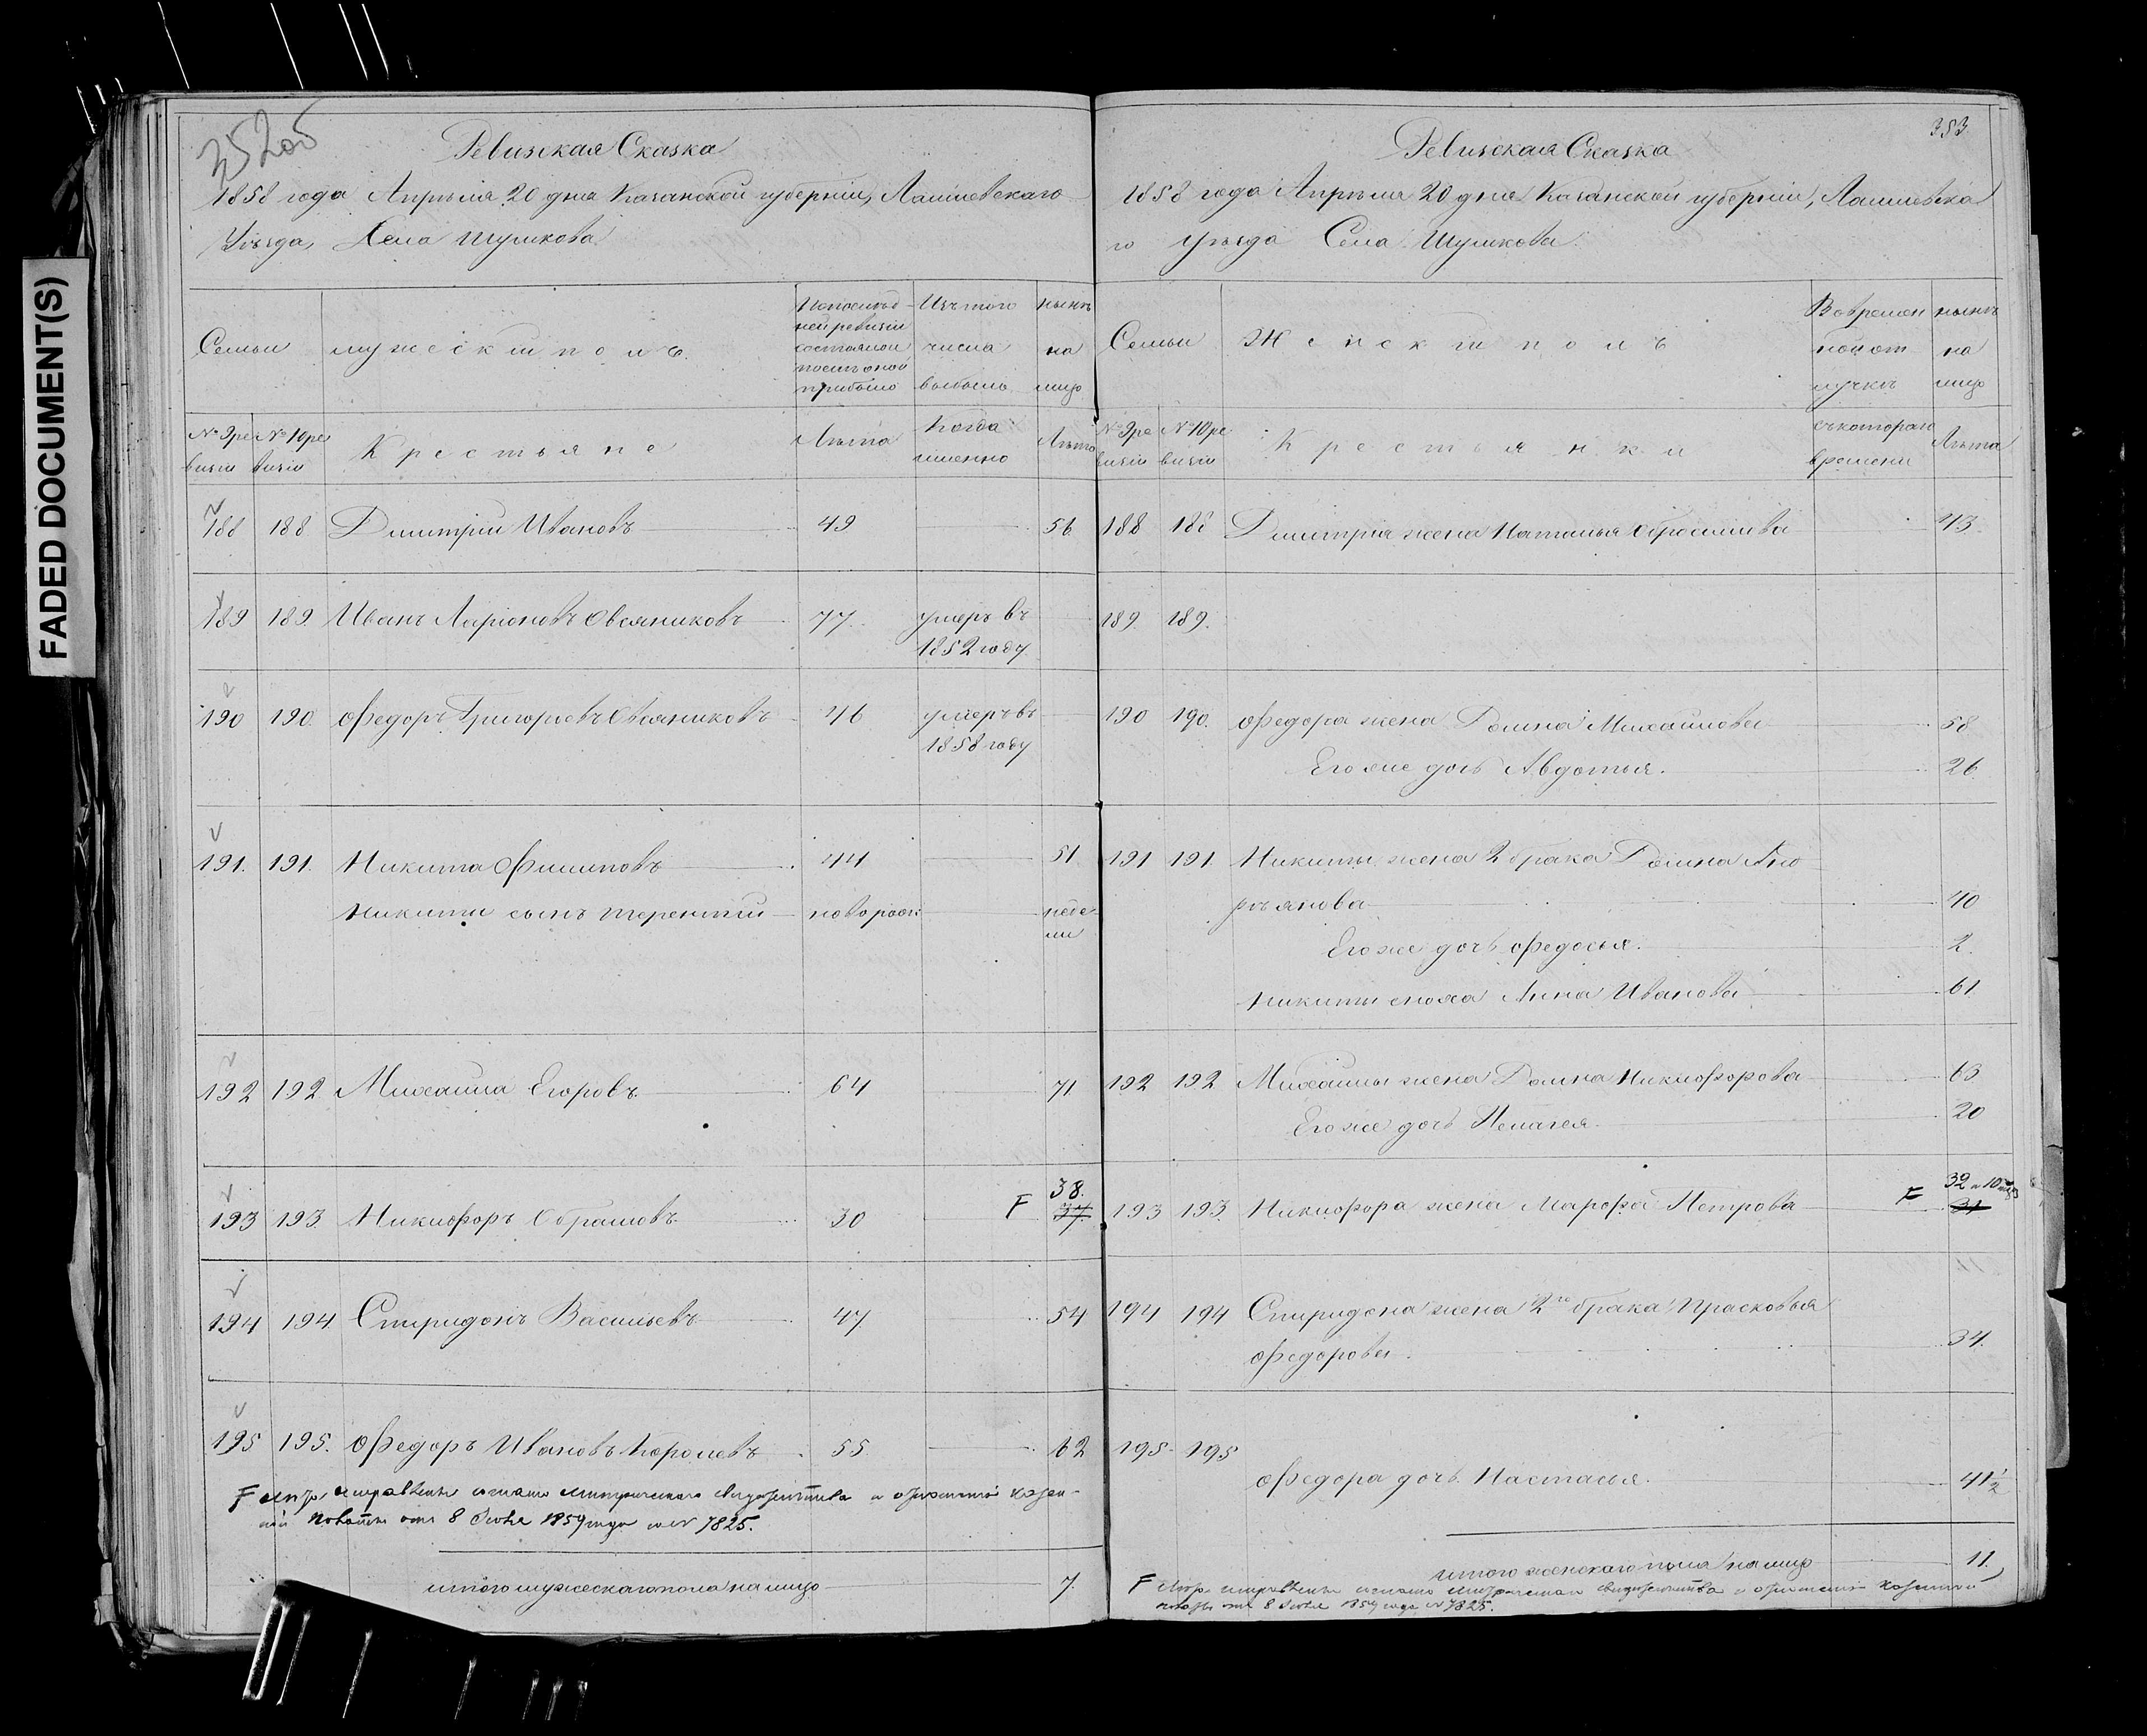 FADED DOCUMENT(S)
352об
Ревизская Сказка
1858 года Апрѣля 20 дня Казанской губерніи, Лаишевскаго
Уѣзда, Села Шумкова
Семьи
мужескій полъ
По послѣд
ней ревизіи
состояло и
послѣ оной
прибыло
Изъ того
числа
выбыло
нынѣ
на
лицо
№ 9 ре
визіи
№ 10 ре
визіи
Крестьяне
Лѣта
Когда
именно
Лѣта
188 188 Дмитрій Ивановъ 49 56
189 189 Иванъ Ларіоновъ Овсяниковъ 77 умеръ въ
1852 году
190 190 Федоръ Григорьевъ Овсяниковъ 46 умеръ въ
1858 году
191. 191. Никита Филиповъ 44 51
Никиты сынъ Терентій новорож: неде
ли
192 192 Михаила Егоровъ 64 71
38.
193 193 Никифоръ Обрамовъ 30 F 37.
194 194 Спиридонъ Васильевъ 47 54
195 195. Федоръ Ивановъ Королевъ 55 62
F исправлены согласно метрическаго свидѣтельства и
от 8 1859 года за № 7825.
итого мужескаго пола на лицо 7.
353
Ревизская Сказка
1858 года Апрѣля 20 дня Казанской губерніи, Лаишевска
го Уѣзда Села Шумкова
Семьи
Женскій полъ
Во времен
ной от
лучкѣ
нынѣ
на
лицо
№ 9 ре
визіи
№ 10 ре
визіи
Крестьянки
съ котораго
времени
Лѣта
188 188 Дмитрія жена Наталья Обросимова 43
189 189.
190 190. Федора жена Домна Михайлова 58
Его же дочь Авдотья. 26
191 191 Никиты жена 2 брака Домна Ано
рьянова 40
Его же дочь Федосья. 2.
Никиты сноха Анна Иванова 61
192 192 Михайлы жена Домна Никифорова 63
Его же дочь Пелагея. 20
32 и 10
193 193. Никифора жена Марфа Петрова F 31
194 194 Спиридона жена 2го брака Прасковья
Федорова. 34.
195 195
Федора дочь Настасья. 41½
итого женскаго пола на лицо 11.
F исправлены согласно метрическаго свидѣтельства и
от 8 1859 года № 7825.